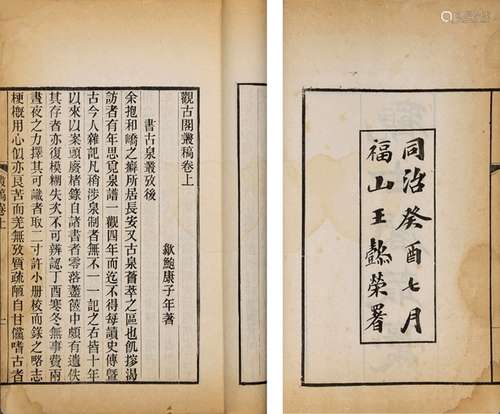 同治癸酉七月
福山王懿榮署
觀古閣叢稿卷上
歙鮑康子年著
書古泉叢攷後
余抱和嶠之癖所居長安又古泉薈萃之區也飢搜渴
訪者有年思覓泉譜一觀四年而迄不得每讀史傳暨
古今人雜記凡稍涉泉制者無不一一記之右皆十年
以來以案頭賸楮錄自諸書者零落篋中頗有遺佚
其存者亦復模糊失次不可辨認丁酉寒冬無事費兩
晝夜之力擇其可識者取二寸許小册校而錄之略志
梗概用心似亦良苦而羌無攷質疏陋自甘儻嗜古者
稿卷上